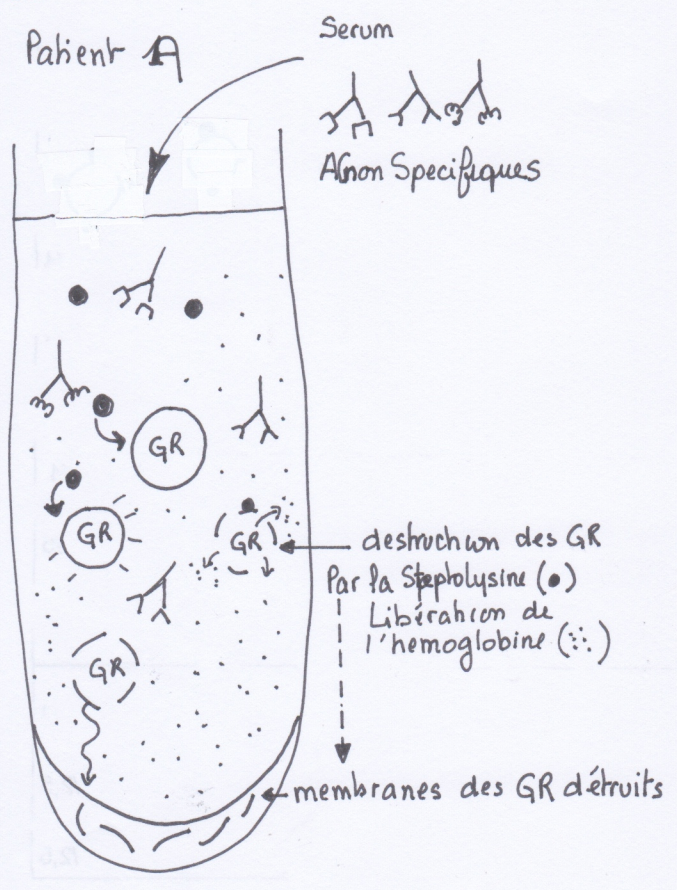 Patient A
Serum
AC non Specifiques
GR
GR
GR
GR
destruction des GR
Par la Streptolysine (●)
Libération de
l'hemoglobine (∴)
membranes des GR détruits